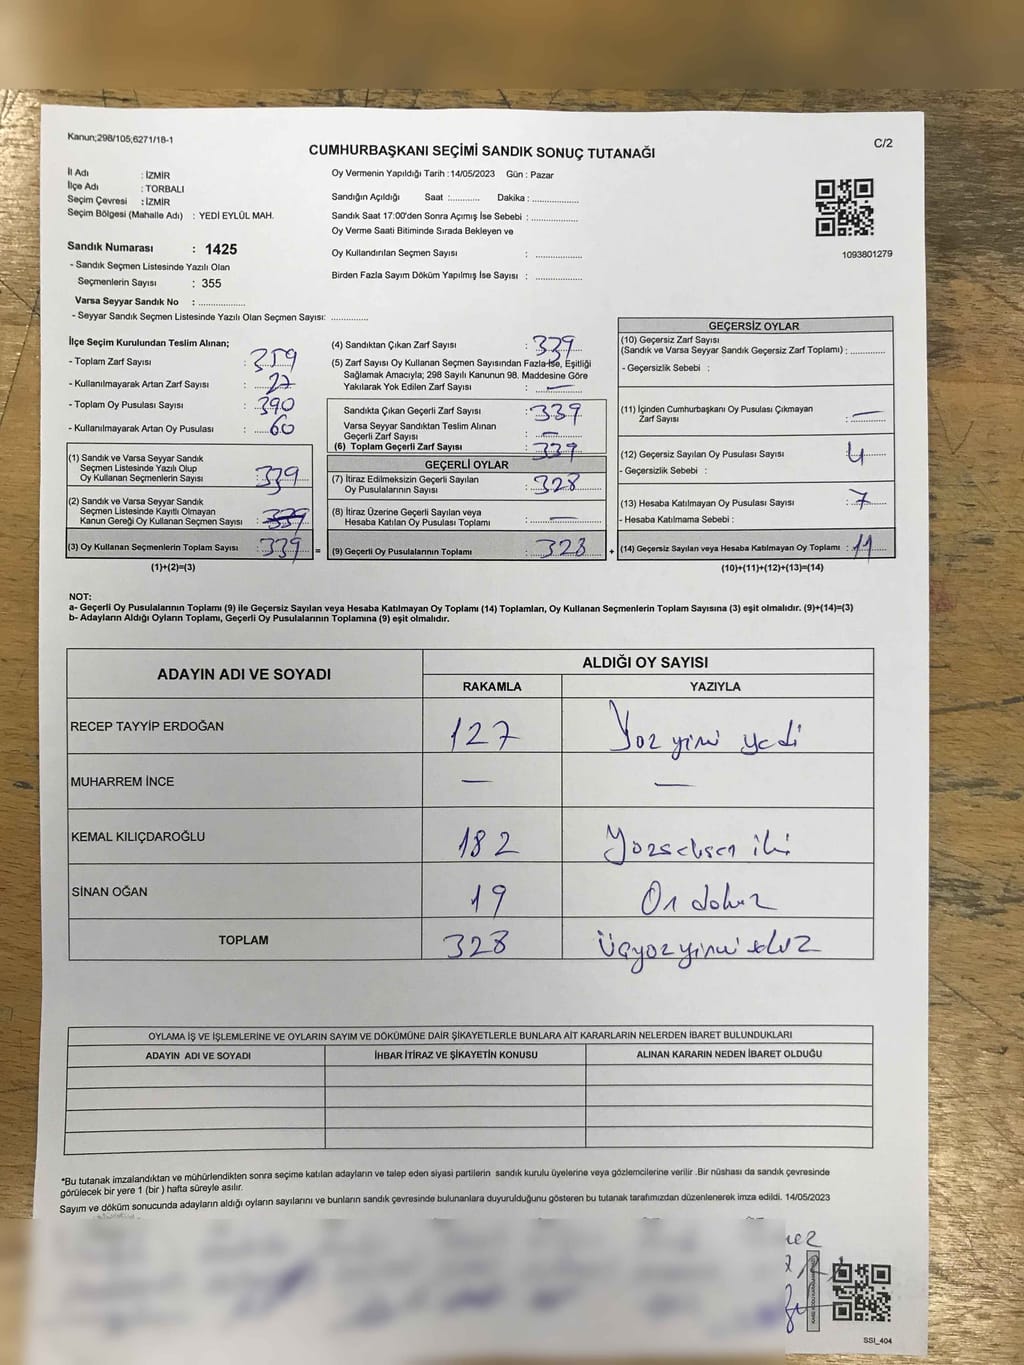 Kanun;298/105;6271/18-1
C/2
CUMHURBAŞKANI SEÇİMİ SANDIK SONUÇ TUTANAĞI
İl Adı : İZMİR
İlçe Adı : TORBALI
Seçim Çevresi : İZMİR
Seçim Bölgesi (Mahalle Adı) : YEDİ EYLÜL MAH.
Sandık Numarası : 1425
- Sandık Seçmen Listesinde Yazılı Olan
Seçmenlerin Sayısı : 355
Varsa Seyyar Sandık No : ..................
- Seyyar Sandık Seçmen Listesinde Yazılı Olan Seçmen Sayısı: ..............
Oy Vermenin Yapıldığı Tarih : 14/05/2023 Gün : Pazar
Sandığın Açıldığı Saat :........... Dakika : ..................
Sandık Saat 17:00'den Sonra Açımış İse Sebebi : ..................
Oy Verme Saati Bitiminde Sırada Bekleyen ve
Oy Kullandırılan Seçmen Sayısı : ..................
Birden Fazla Sayım Döküm Yapılmış İse Sayısı : ..................
1093801279
İlçe Seçim Kurulundan Teslim Alınan;
- Toplam Zarf Sayısı : 359
- Kullanılmayarak Artan Zarf Sayısı :
- Toplam Oy Pusulası Sayısı : 390
- Kullanılmayarak Artan Oy Pusulası : 60
(1) Sandık ve Varsa Seyyar Sandık
Seçmen Listesinde Yazılı Olup
Oy Kullanan Seçmenlerin Sayısı : 339
(2) Sandık ve Varsa Seyyar Sandık
Seçmen Listesinde Kayıtlı Olmayan
Kanun Gereği Oy Kullanan Seçmen Sayısı : 339
(3) Oy Kullanan Seçmenlerin Toplam Sayısı : 339 =
(1)+(2)=(3)
(4) Sandıktan Çıkan Zarf Sayısı : 339
(5) Zarf Sayısı Oy Kullanan Seçmen Sayısından Fazla İse, Eşitliği
Sağlamak Amacıyla; 298 Sayılı Kanunun 98. Maddesine Göre
Yakılarak Yok Edilen Zarf Sayısı : —
Sandıkta Çıkan Geçerli Zarf Sayısı : 339
Varsa Seyyar Sandıktan Teslim Alınan
Geçerli Zarf Sayısı : —
(6) Toplam Geçerli Zarf Sayısı : 339
GEÇERLİ OYLAR
(7) İtiraz Edilmeksizin Geçerli Sayılan
Oy Pusulalarının Sayısı : 328
(8) İtiraz Üzerine Geçerli Sayılan veya
Hesaba Katılan Oy Pusulası Toplamı : —
(9) Geçerli Oy Pusulalarının Toplamı : 328 +
GEÇERSİZ OYLAR
(10) Geçersiz Zarf Sayısı
(Sandık ve Varsa Seyyar Sandık Geçersiz Zarf Toplamı) : .............
- Geçersizlik Sebebi :
(11) İçinden Cumhurbaşkanı Oy Pusulası Çıkmayan
Zarf Sayısı : —
(12) Geçersiz Sayılan Oy Pusulası Sayısı : 4
- Geçersizlik Sebebi :
(13) Hesaba Katılmayan Oy Pusulası Sayısı : 7
- Hesaba Katılmama Sebebi :
(14) Geçersiz Sayılan veya Hesaba Katılmayan Oy Toplamı : 11
(10)+(11)+(12)+(13)=(14)
NOT:
a- Geçerli Oy Pusulalarının Toplamı (9) ile Geçersiz Sayılan veya Hesaba Katılmayan Oy Toplamı (14) Toplamları, Oy Kullanan Seçmenlerin Toplam Sayısına (3) eşit olmalıdır. (9)+(14)=(3)
b- Adayların Aldığı Oyların Toplamı, Geçerli Oy Pusulalarının Toplamına (9) eşit olmalıdır.
ADAYIN ADI VE SOYADI
ALDIĞI OY SAYISI
RAKAMLA YAZIYLA
RECEP TAYYİP ERDOĞAN 127 Yüz yirmi yedi
MUHARREM İNCE — —
KEMAL KILIÇDAROĞLU 182 Yüzseksen iki
SİNAN OĞAN 19 On dokuz
TOPLAM 328 Üçyüzyirmi sekiz
OYLAMA İŞ VE İŞLEMLERİNE VE OYLARIN SAYIM VE DÖKÜMÜNE DAİR ŞİKAYETLERLE BUNLARA AİT KARARLARIN NELERDEN İBARET BULUNDUKLARI
ADAYIN ADI VE SOYADI İHBAR İTİRAZ VE ŞİKAYETİN KONUSU ALINAN KARARIN NEDEN İBARET OLDUĞU
*Bu tutanak imzalandıktan ve mühürlendikten sonra seçime katılan adayların ve talep eden siyasi partilerin sandık kurulu üyelerine veya gözlemcilerine verilir .Bir nüshası da sandık çevresinde
görülecek bir yere 1 (bir ) hafta süreyle asılır.
Sayım ve döküm sonucunda adayların aldığı oyların sayılarını ve bunların sandık çevresinde bulunanlara duyurulduğunu gösteren bu tutanak tarafımızdan düzenlenerek imza edildi. 14/05/2023
SSI_404